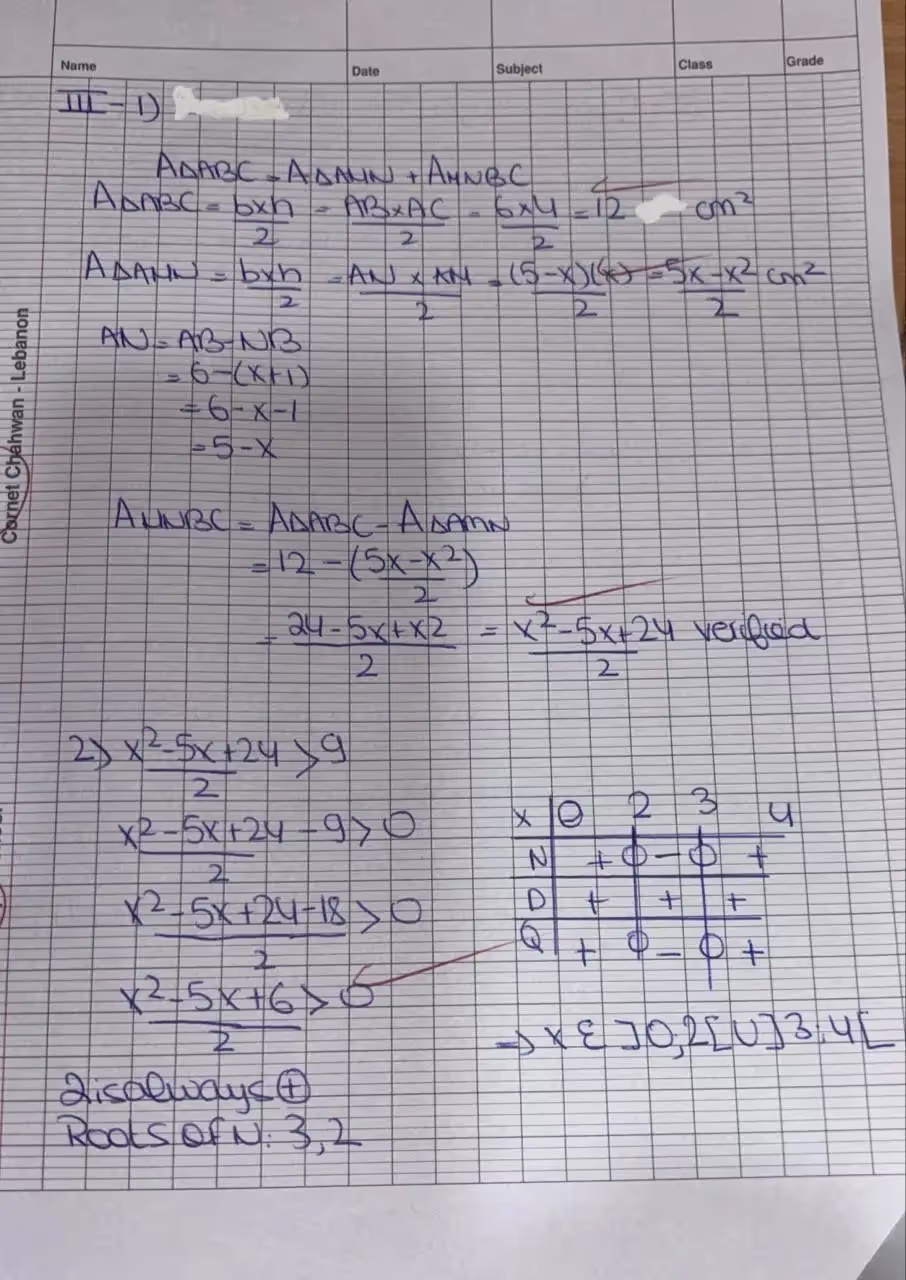 Name Date Subject Class Grade
III - 1)
A△ABC = A△AMN + AMNBC
A△ABC = b×h/2 = AB×AC/2 = 6×4/2 = 12 cm²
A△AMN = b×h/2 = AN × AM/2 = (5-x)(x)/2 = 5x-x²/2 cm²
AN = AB-NB
= 6-(x+1)
= 6-x-1
= 5-x
Cornet Chahwan - Lebanon
AMNBC = A△ABC - A△AMN
= 12 - (5x-x²/2)
= 24-5x+x2/2 = x²-5x+24/2 verified
2) x²-5x+24/2 > 9
x²-5x+24/2 - 9 > 0
x²-5x+24-18/2 > 0
x²-5x+6/2 > 0
2 is always ⊕
Roots of N: 3, 2
x 0 2 3 4
N + 0 - 0 +
D + + +
Q + 0 - 0 +
⇒ x ∈ ]0,2[ U ]3,4[